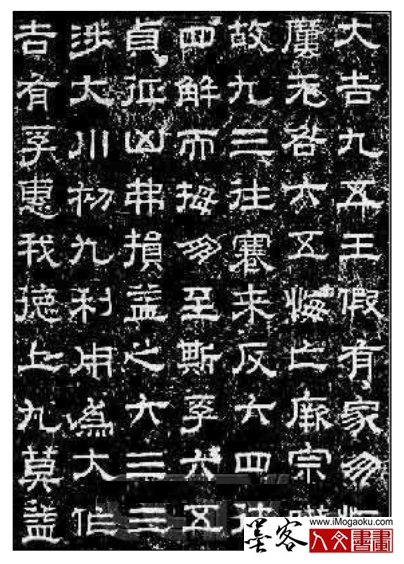 大吉九五王假有家勿
厲无咎六五悔亡厥宗
故九三往蹇來反六四
四解而拇朋至斯孚六五
貞征凶弗損益之六三三
涉大川初九利用為大作
吉有孚惠我德上九莫益
墨客
www.iMogaoku.com
人文書畫